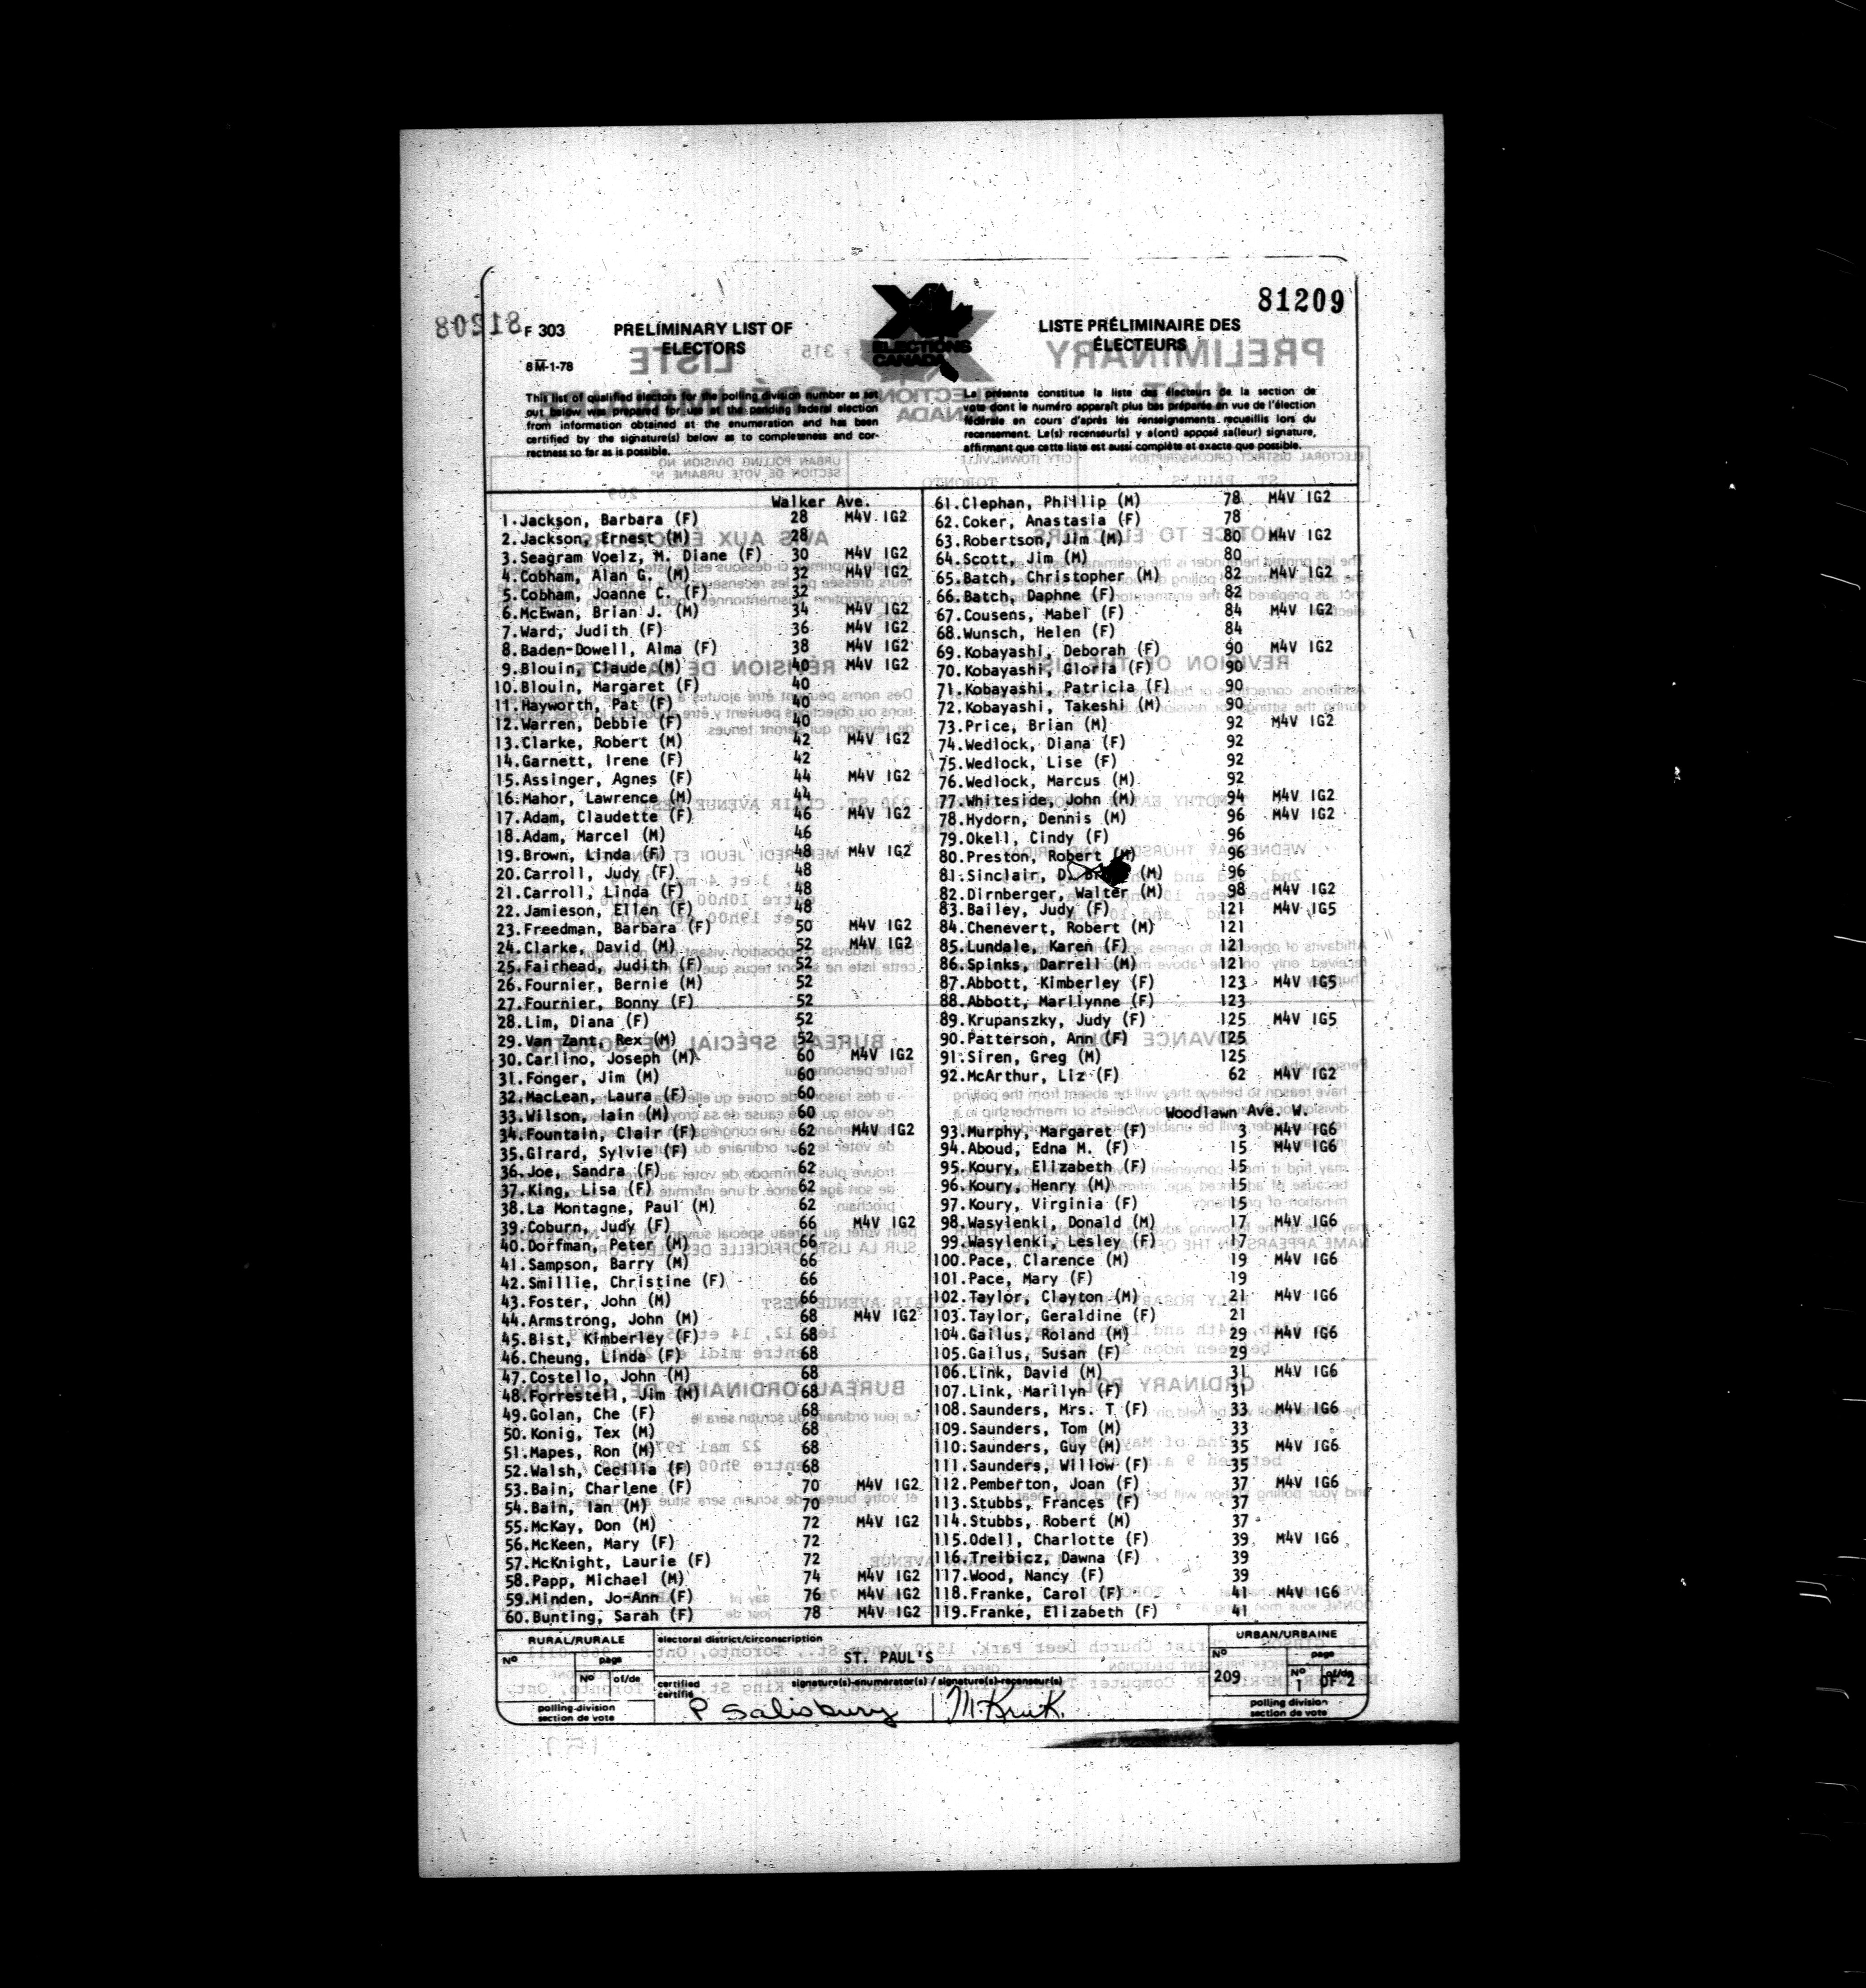 81209
F 303
PRELIMINARY LIST OF
ELECTORS
8M-1-78
ELECTIONS
CANADA
LISTE PRÉLIMINAIRE DES
ÉLECTEURS
This list of qualified electors for the polling division number as set
out below was prepared for use at the pending federal election
from information obtained at the enumeration and has been
certified by the signature(s) below as to completeness and cor-
rectness so far as is possible.
La présente constitue la liste des électeurs de la section de
vote dont le numéro apparaît plus bas préparée en vue de l'élection
fédérale en cours d'après les renseignements recueillis lors du
recensement. Le(s) recenseur(s) y a(ont) apposé sa(leur) signature,
affirmant que cette liste est aussi complète et exacte que possible.
Walker Ave.
1.Jackson, Barbara (F) 28 M4V 1G2
2.Jackson, Ernest (M) 28
3.Seagram Voelz, M. Diane (F) 30 M4V 1G2
4.Cobham, Alan G. (M) 32 M4V 1G2
5.Cobham, Joanne C. (F) 32
6.McEwan, Brian J. (M) 34 M4V 1G2
7.Ward, Judith (F) 36 M4V 1G2
8.Baden-Dowell, Alma (F) 38 M4V 1G2
9.Blouin, Claude (M) 40 M4V 1G2
10.Blouin, Margaret (F) 40
11.Hayworth, Pat (F) 40
12.Warren, Debbie (F) 40
13.Clarke, Robert (M) 42 M4V 1G2
14.Garnett, Irene (F) 42
15.Assinger, Agnes (F) 44 M4V 1G2
16.Mahor, Lawrence (M) 44
17.Adam, Claudette (F) 46 M4V 1G2
18.Adam, Marcel (M) 46
19.Brown, Linda (F) 48 M4V 1G2
20.Carroll, Judy (F) 48
21.Carroll, Linda (F) 48
22.Jamieson, Ellen (F) 48
23.Freedman, Barbara (F) 50 M4V 1G2
24.Clarke, David (M) 52 M4V 1G2
25.Fairhead, Judith (F) 52
26.Fournier, Bernie (M) 52
27.Fournier, Bonny (F) 52
28.Lim, Diana (F) 52
29.Van Zant, Rex (M) 52
30.Carlino, Joseph (M) 60 M4V 1G2
31.Fonger, Jim (M) 60
32.MacLean, Laura (F) 60
33.Wilson, Iain (M) 60
34.Fountain, Clair (F) 62 M4V 1G2
35.Girard, Sylvie (F) 62
36.Joe, Sandra (F) 62
37.King, Lisa (F) 62
38.La Montagne, Paul (M) 62
39.Coburn, Judy (F) 66 M4V 1G2
40.Dorfman, Peter (M) 66
41.Sampson, Barry (M) 66
42.Smillie, Christine (F) 66
43.Foster, John (M) 66
44.Armstrong, John (M) 68 M4V 1G2
45.Bist, Kimberley (F) 68
46.Cheung, Linda (F) 68
47.Costello, John (M) 68
48.Forrestell, Jim (M) 68
49.Golan, Che (F) 68
50.Konig, Tex (M) 68
51.Mapes, Ron (M) 68
52.Walsh, Cecilia (F) 68
53.Bain, Charlene (F) 70 M4V 1G2
54.Bain, Ian (M) 70
55.McKay, Don (M) 72 M4V 1G2
56.McKeen, Mary (F) 72
57.McKnight, Laurie (F) 72
58.Papp, Michael (M) 74 M4V 1G2
59.Minden, Jo-Ann (F) 76 M4V 1G2
60.Bunting, Sarah (F) 78 M4V 1G2
61.Clephan, Phillip (M) 78 M4V 1G2
62.Coker, Anastasia (F) 78
63.Robertson, Jim (M) 80 M4V 1G2
64.Scott, Jim (M) 80
65.Batch, Christopher (M) 82 M4V 1G2
66.Batch, Daphne (F) 82
67.Cousens, Mabel (F) 84 M4V 1G2
68.Wunsch, Helen (F) 84
69.Kobayashi, Deborah (F) 90 M4V 1G2
70.Kobayashi, Gloria (F) 90
71.Kobayashi, Patricia (F) 90
72.Kobayashi, Takeshi (M) 90
73.Price, Brian (M) 92 M4V 1G2
74.Wedlock, Diana (F) 92
75.Wedlock, Lise (F) 92
76.Wedlock, Marcus (M) 92
77.Whiteside, John (M) 94 M4V 1G2
78.Hydorn, Dennis (M) 96 M4V 1G2
79.Okell, Cindy (F) 96
80.Preston, Robert (M) 96
81.Sinclair, D. (M) 96
82.Dirnberger, Walter (M) 98 M4V 1G2
83.Bailey, Judy (F) 121 M4V 1G5
84.Chenevert, Robert (M) 121
85.Lundale, Karen (F) 121
86.Spinks, Darrell (M) 121
87.Abbott, Kimberley (F) 123 M4V 1G5
88.Abbott, Marilynne (F) 123
89.Krupanszky, Judy (F) 125 M4V 1G5
90.Patterson, Ann (F) 125
91.Siren, Greg (M) 125
92.McArthur, Liz (F) 62 M4V 1G2
Woodlawn Ave. W.
93.Murphy, Margaret (F) 3 M4V 1G6
94.Aboud, Edna M. (F) 15 M4V 1G6
95.Koury, Elizabeth (F) 15
96.Koury, Henry (M) 15
97.Koury, Virginia (F) 15
98.Wasylenki, Donald (M) 17 M4V 1G6
99.Wasylenki, Lesley (F) 17
100.Pace, Clarence (M) 19 M4V 1G6
101.Pace, Mary (F) 19
102.Taylor, Clayton (M) 21 M4V 1G6
103.Taylor, Geraldine (F) 21
104.Gailus, Roland (M) 29 M4V 1G6
105.Gailus, Susan (F) 29
106.Link, David (M) 31 M4V 1G6
107.Link, Marilyn (F) 31
108.Saunders, Mrs. T (F) 33 M4V 1G6
109.Saunders, Tom (M) 33
110.Saunders, Guy (M) 35 M4V 1G6
111.Saunders, Willow (F) 35
112.Pemberton, Joan (F) 37 M4V 1G6
113.Stubbs, Frances (F) 37
114.Stubbs, Robert (M) 37
115.Odell, Charlotte (F) 39 M4V 1G6
116.Treibicz, Dawna (F) 39
117.Wood, Nancy (F) 39
118.Franke, Carol (F) 41 M4V 1G6
119.Franke, Elizabeth (F) 41
RURAL/RURALE
No page
No of/de
polling division
section de vote
electoral district/circonscription
ST. PAUL'S
certified
certifié
signature(s)-enumerator(s) / signature(s)-recenseur(s)
P Salisbury
M. Kruk.
URBAN/URBAINE
No page
209 No 1 OF 2
polling division
section de vote